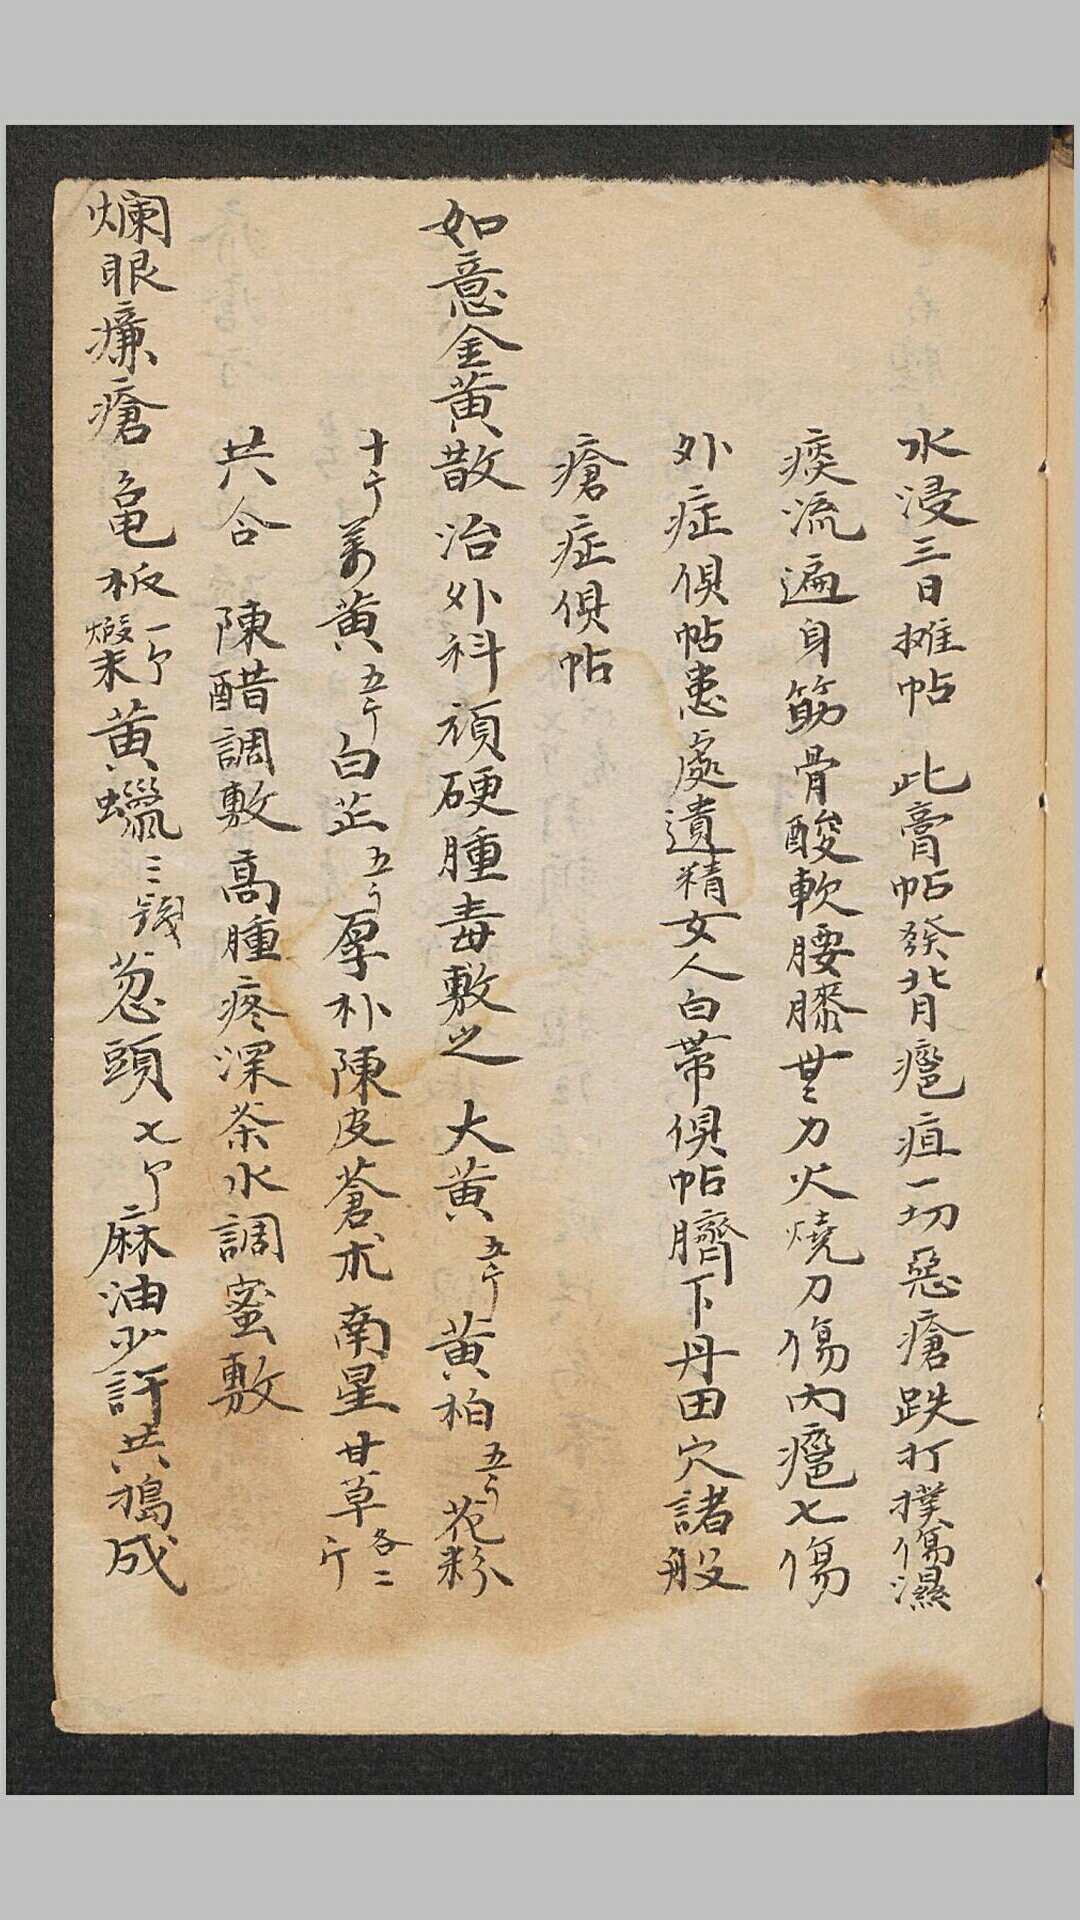 水浸三日摊帖　此膏帖發背癰疽一切惡瘡跌打撲傷濕
痰流遍身筋骨酸軟腰膝無力火燒刀傷內癰七傷
外症俱帖患處遺精女人白帶俱帖臍下丹田穴諸般
瘡症俱帖
如意金黄散　治外科頑硬腫毒敷之　大黄五斤黄柏五斤花粉
十斤姜黄五斤白芷五斤厚朴陳皮蒼朮南星甘草各二斤
共合　陳醋調敷高腫疼深茶水調蜜敷
爛眼㾾瘡　龟板一兩煅末黄蠟三錢葱頭七个麻油少許共搗成